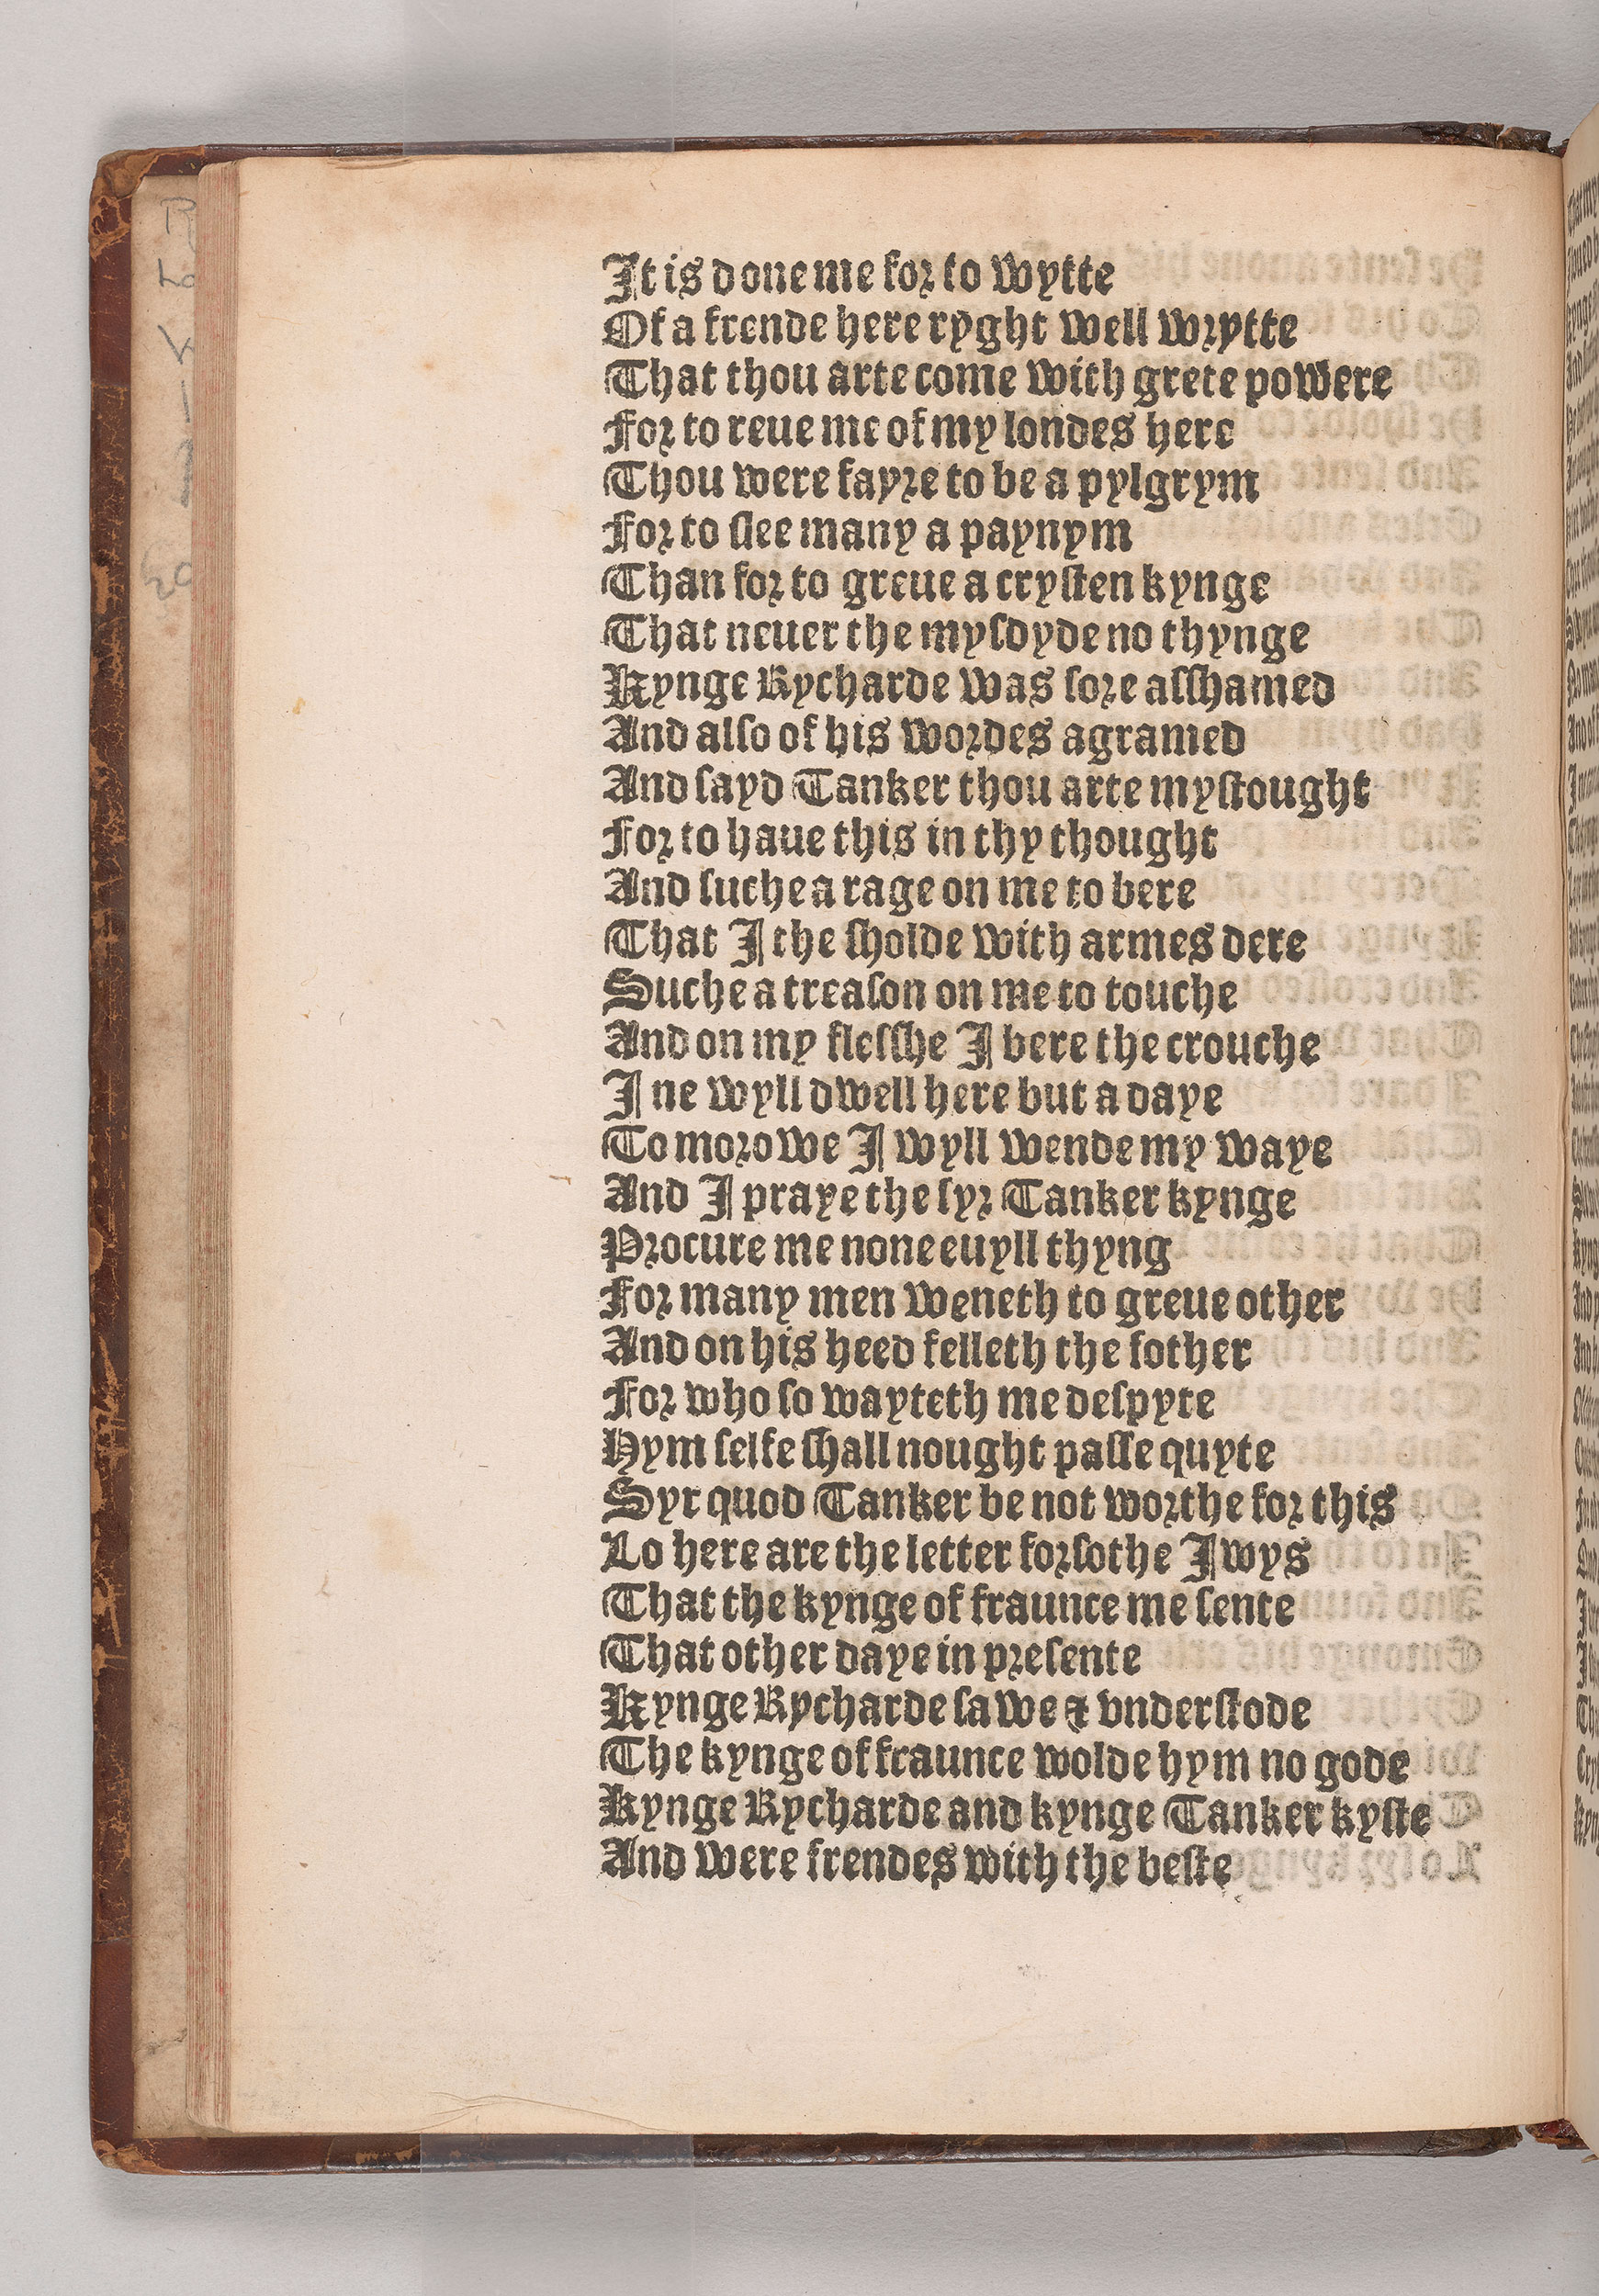 It is done me for to wytte
Of a frende here ryght well wrytte
That thou arte come with grete powere
For to reue me of my londes here
Thou were fayre to be a pylgrym
For to slee many a paynym
Than for to greue a crysten kynge
That neuer the mysdyde no thynge
Kynge Rycharde was sore asshamed
And also of his wordes agramed
And sayd Tanker thou arte mystought
For to haue this in thy thought
And suche a rage on me to bere
That I the sholde with armes dere
Suche a treason on me to touche
And on my flesshe I bere the crouche
I ne wyll dwell here but a daye
To morowe I wyll wende my waye
And I praye the syr Tanker kynge
Procure me none euyll thyng
For many men weneth to greue other
And on his heed felleth the fother
For who so wayteth me despyte
Hym selfe shall nought passe quyte
Syr quod Tanker be not worthe for this
Lo here are the letter forsothe Iwys
That the kynge of fraunce me sente
That other daye in presente
Kynge Rycharde sawe & vnderstode
The kynge of fraunce wolde hym no gode
Kynge Rycharde and kynge Tanker kyste
And were frendes with the beste